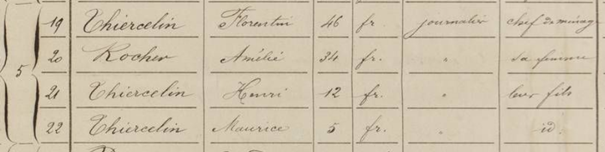 19 Thiercelin Florentin 46 fr journalier chef de ménage
5 20 Rocher Amélie 34 fr. " sa femme
21 Thiercelin Henri 12 fr. " leur fils
22 Thiercelin Maurice 5 fr. " id.